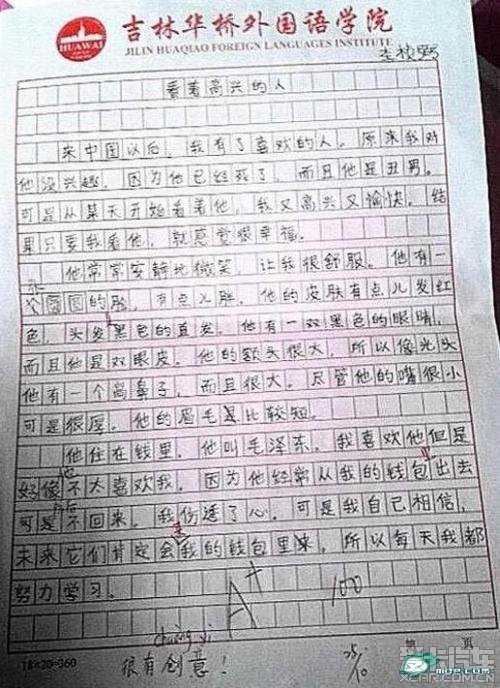 吉林华桥外国语学院
HUAWAI
JILIN HUAQIAO FOREIGN LANGUAGES INSTITUTE
看着高兴的人
来中国以后，我有了喜欢的人。原来我对
他没兴趣。因为他已经死了，而且他是丑男。
可是从某天开始看着他，我又高兴又愉快。结
果只要我看他，就感觉很幸福。
他常常安静地微笑，让我很舒服。他有一
个圆圆的脸，有点儿胖。他的皮肤有点儿发红
色，头发黑色的直发。他有一双黑色的眼睛，
而且他是双眼皮。他的额头很大，所以像光头
他有一个高鼻子，而且很大。尽管他的嘴很小
可是很厚。他的眉毛是比较短。
他住在钱里。他叫毛泽东。我喜欢他但是
好像他不太喜欢我。因为他经常从我的钱包出去
可是不回来。我伤透了心。可是我自己相信，
未来它们肯定会我的钱包里来。所以每天我都
努力学习。
A+
100
chuàng yì
很有创意！
25/10
18×20=360
页
爱卡汽车
XCAR.COM.CN